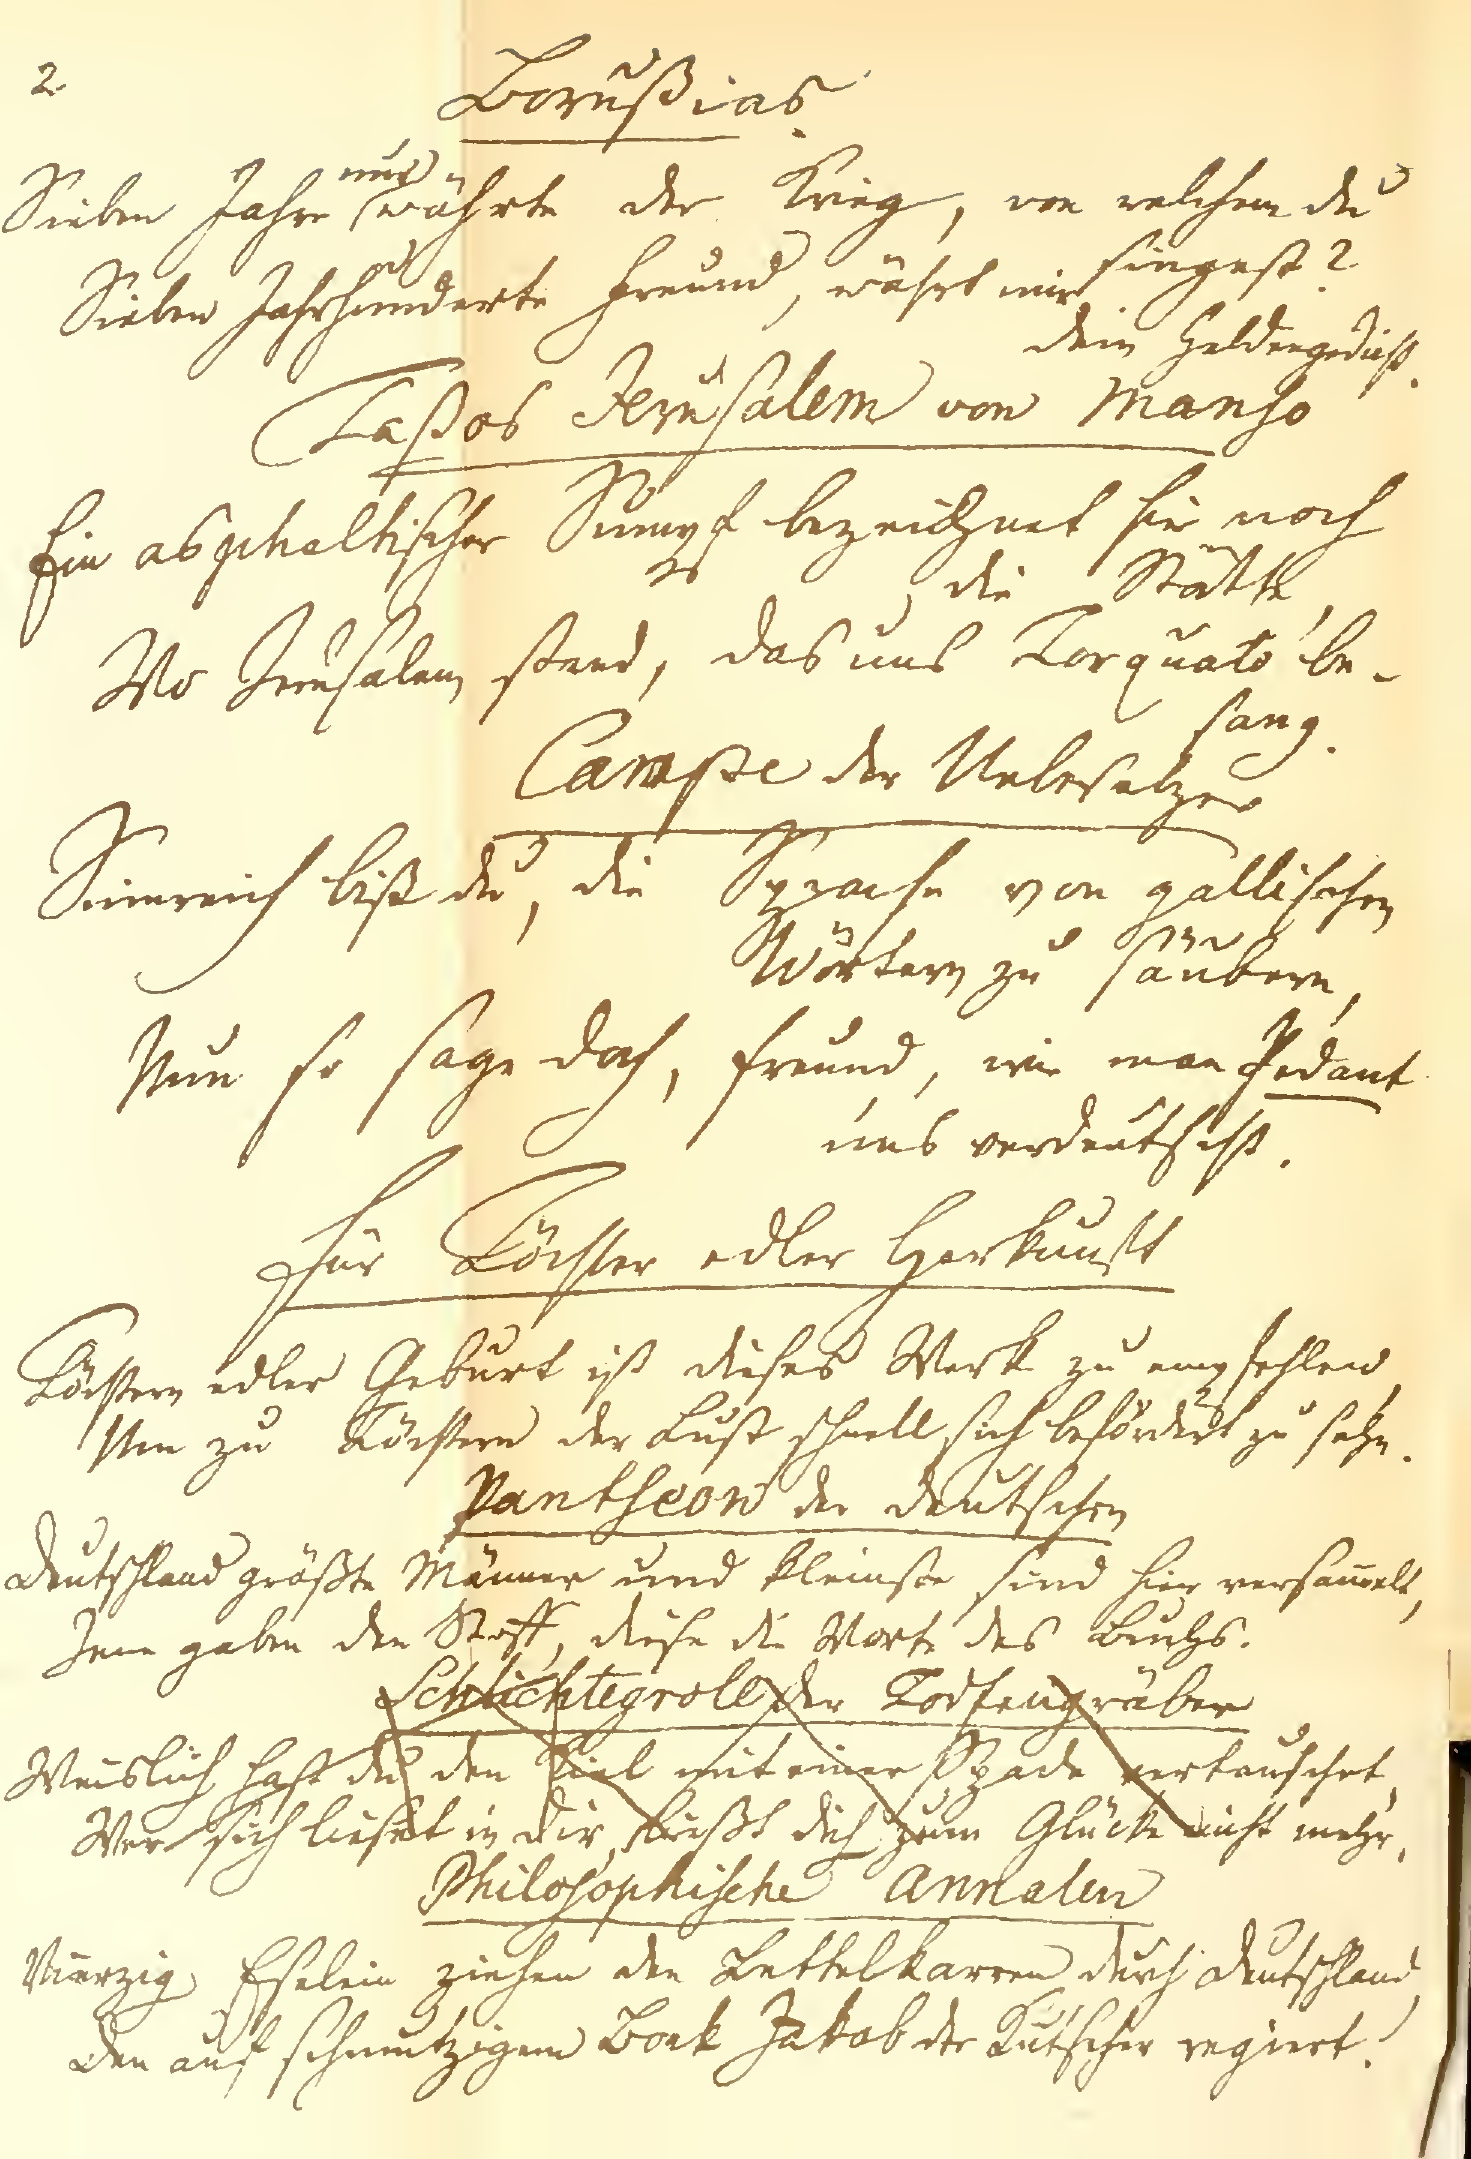 2.
Borußias.
nur
Sieben Jahre währte der Krieg, von welchem du
singest?
Sieben Jahrhunderte Freund, währt mir
dein Heldengedicht.
Taßos Jerusalem von Manso
Ein asphaltischer Sumpf bezeichnet hier noch
die Stätte,
Wo Jerusalem stand, das uns Torquato be-
sang.
Campe der Uebersetzer
Sinnreich bist du, die Sprache von gallischen
Wörtern zu säubern,
Nun so sage doch, Freund, wie man Pedant
uns verdeutscht.
Für Töchter edler Herkunft
Töchtern edler Geburt ist dieses Werk zu empfehlen,
Um zu Töchtern der Lust schnell sich befördert zu sehn.
Pantheon der Deutschen
Deutschland größte Männer und kleinste sind hier versammelt,
Jene gaben den Stoff, diese die Worte des Buchs.
Schlichtegroll der Todtengräber
Weislich hast du den Kiel mit einer Spade vertauschet,
Wer sich lieset in dir, ließt dich zum Glücke nicht mehr.
Philosophische Annalen
Vierzig Eselein ziehen den Bettelkarren durch Deutschland,
Den auf schmutzigem Bock Jakob der Kutscher regiert!